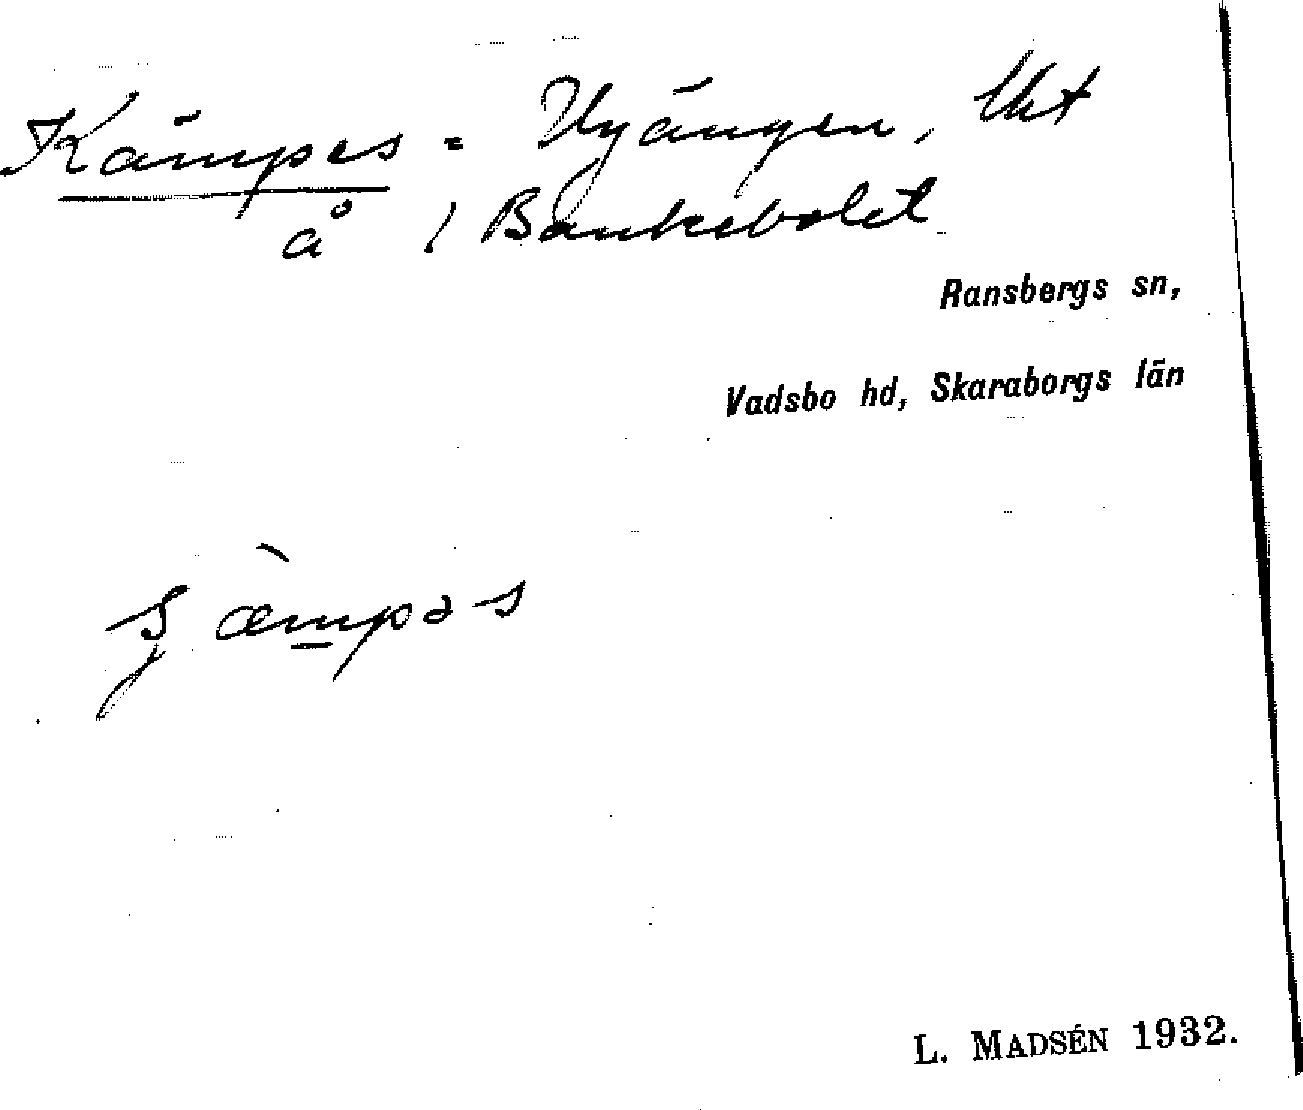 Kämpes = Nyängen, lht
å / Bankebolet
Ransbergs sn,
Vadsbo hd, Skaraborgs län
L. MADSÉN 1932.